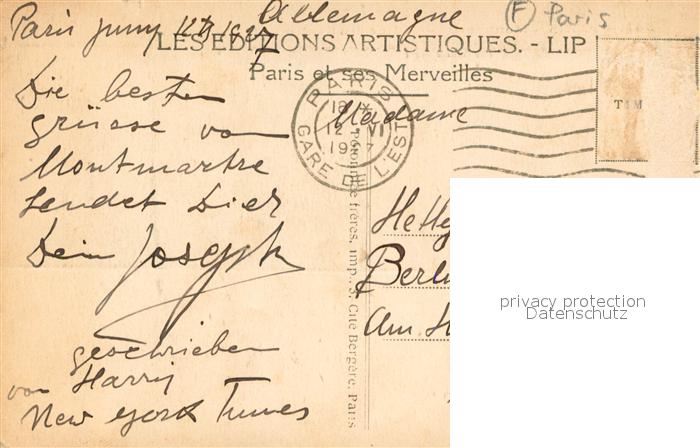 Allemagne
F Paris
Paris juny 12th 1927
LES EDITIONS ARTISTIQUES. - LIP
Paris et ses Merveilles
Die besten
grüsse von
Montmartre
sendet Dier
Dein Joseph
geschrieben
von Harry
New York Times
PARIS
18
12 - VI
1927
GARE DE L'EST
TIM
Madame
Hetty
Berlin
Am H
frères, imp., 5, Cité Bergère, Paris
privacy protection
Datenschutz